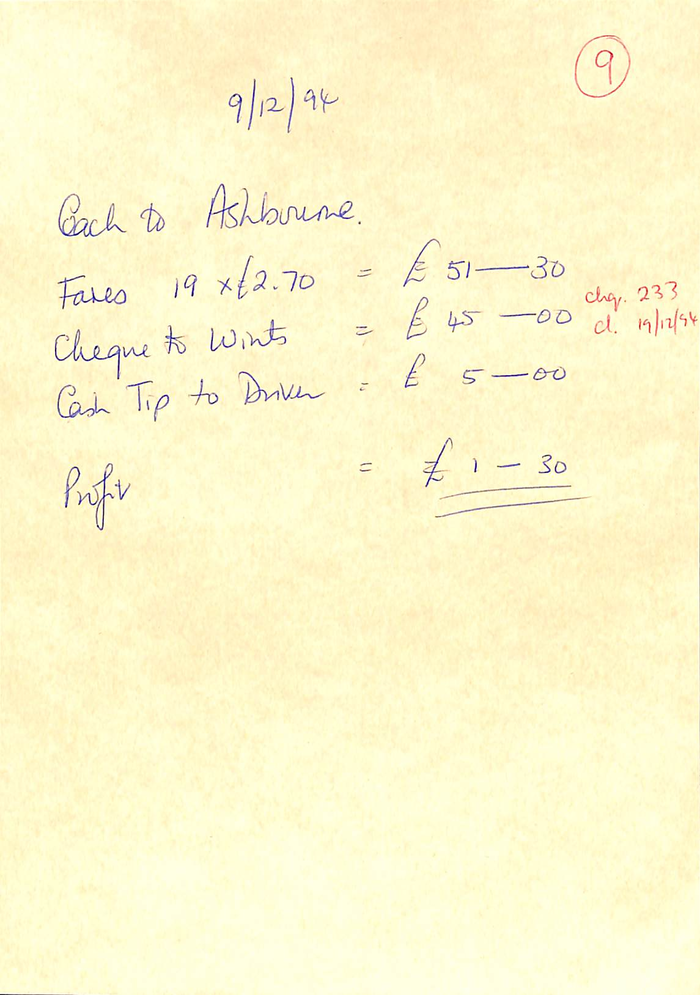 9
9/12/94
Coach to Ashbourne.
Fares 19 x £2.70 = £ 51—30
Cheque to Wints = £ 45 —00 chq. 233
cl. 19/12/94
Cash Tip to Driver = £ 5—00
Profit = £ 1 — 30